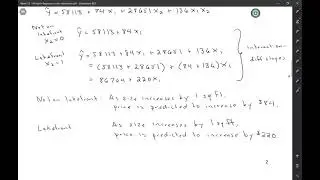 ŷ = 58113 + 84x₁ + 28651x₂ + 136x₁x₂
Not on lakefront x₂=0 ŷ = 58113 + 84x₁
Lakefront x₂=1 ŷ = 58113 + 84x₁ + 28651 + 136x₁
= (58113 + 28651) + (84 + 136)x₁
= 86764 + 220x₁
Interaction diff slopes
Not on lakefront: As size increases by 1 sqft, price is predicted to increase by $84.
Lakefront As size increases by 1 sqft, price is predicted to increase by $220.
2